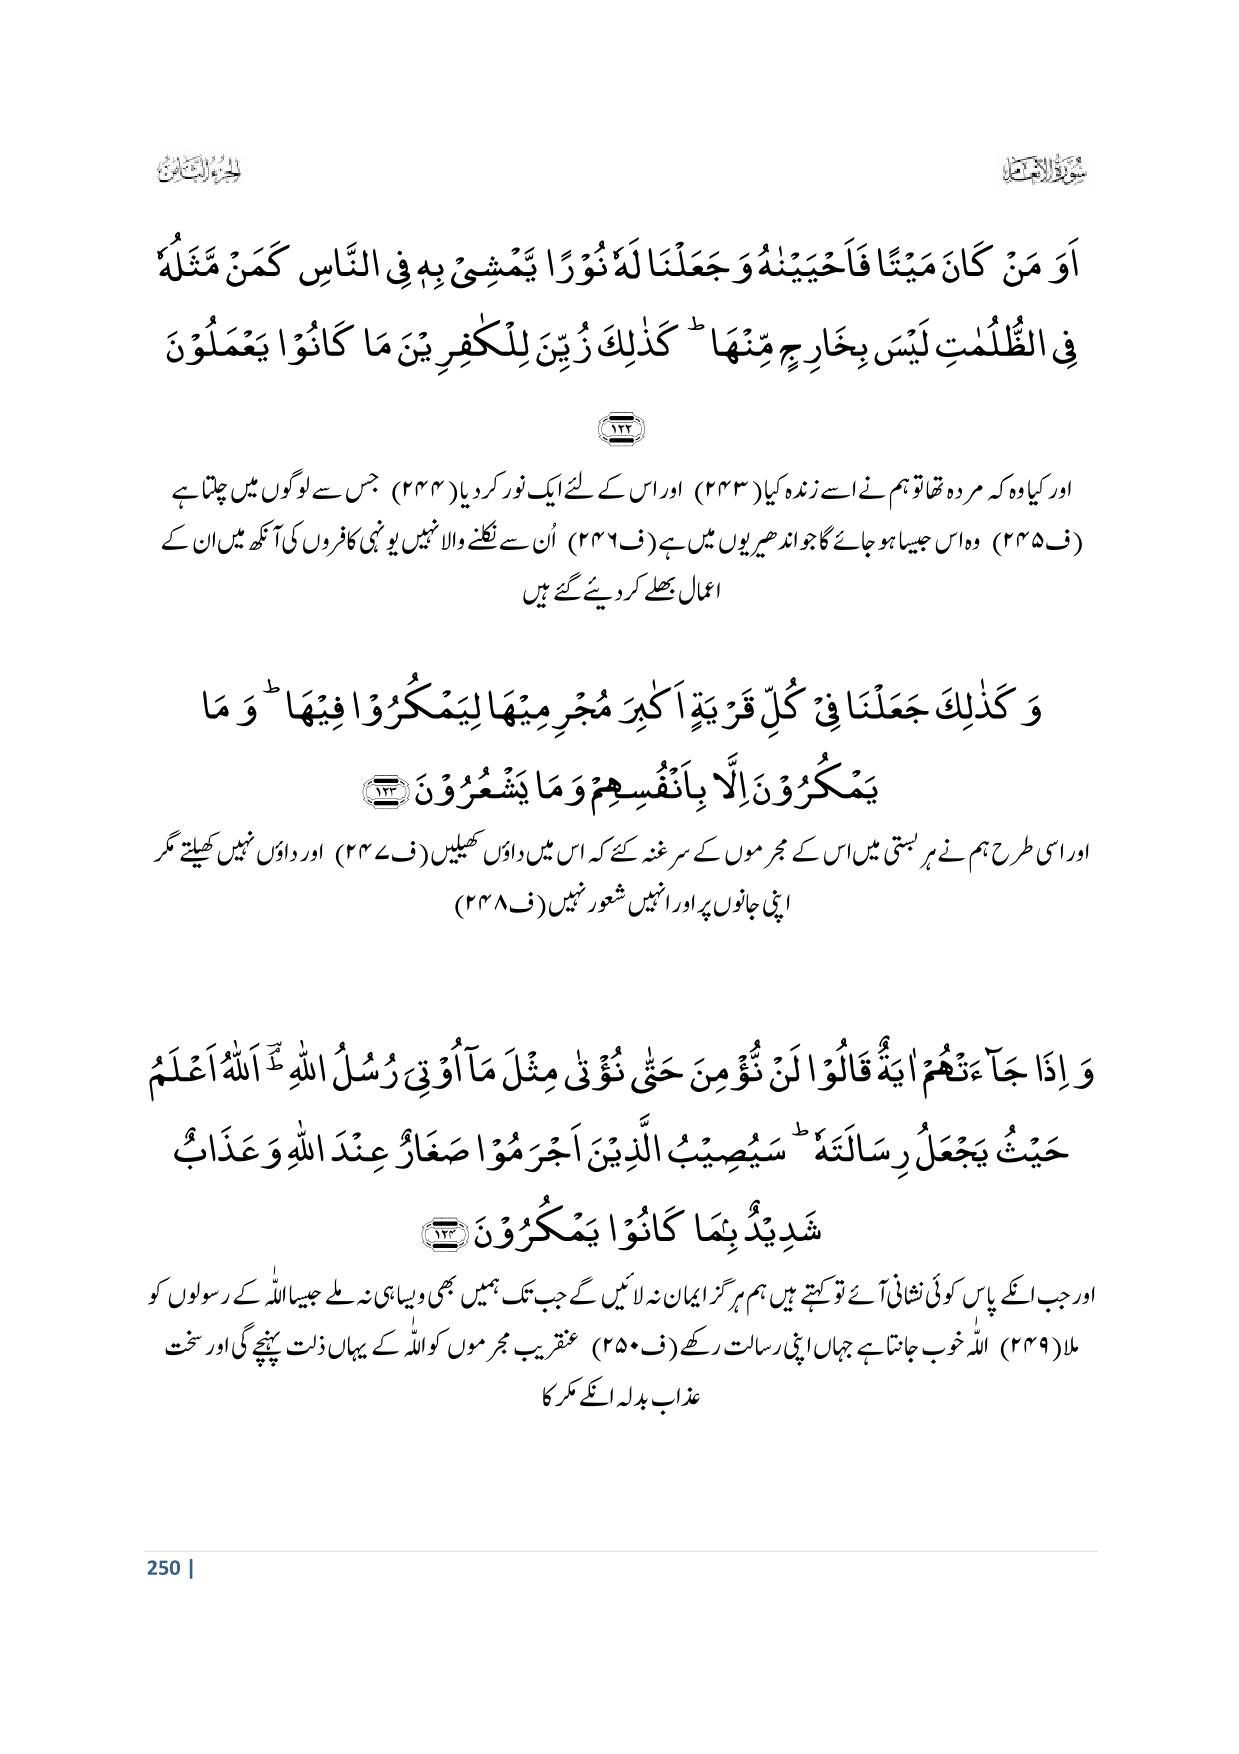 سُوۡرَةُ الۡاَنۡعَامِ
الجزء الثامن
اَوَ مَنۡ كَانَ مَيۡتًا فَاَحۡيَيۡنٰهُ وَ جَعَلۡنَا لَهٗ نُوۡرًا يَّمۡشِىۡ بِهٖ فِى النَّاسِ كَمَنۡ مَّثَلُهٗ
فِى الظُّلُمٰتِ لَيۡسَ بِخَارِجٍ مِّنۡهَا ؕ كَذٰلِكَ زُيِّنَ لِلۡكٰفِرِيۡنَ مَا كَانُوۡا يَعۡمَلُوۡنَ
﴿۱۲۲﴾
اور کیا وہ کہ مردہ تھا تو ہم نے اسے زندہ کیا (۲۴۳) اور اس کے لئے ایک نور کر دیا (۲۴۴) جس سے لوگوں میں چلتا ہے
(ف۲۴۵) وہ اس جیسا ہو جائے گا جو اندھیریوں میں ہے (ف۲۴۶) اُن سے نکلنے والا نہیں یونہی کافروں کی آنکھ میں ان کے
اعمال بھلے کر دیئے گئے ہیں
وَ كَذٰلِكَ جَعَلۡنَا فِىۡ كُلِّ قَرۡيَةٍ اَكٰبِرَ مُجۡرِمِيۡهَا لِيَمۡكُرُوۡا فِيۡهَا ؕ وَ مَا
يَمۡكُرُوۡنَ اِلَّا بِاَنۡفُسِهِمۡ وَ مَا يَشۡعُرُوۡنَ ﴿۱۲۳﴾
اور اسی طرح ہم نے ہر بستی میں اس کے مجرموں کے سرغنہ کئے کہ اس میں داؤں کھیلیں (ف۲۴۷) اور داؤں نہیں کھیلتے مگر
اپنی جانوں پر اور انہیں شعور نہیں (ف۲۴۸)
وَ اِذَا جَآءَتۡهُمۡ اٰيَةٌ قَالُوۡا لَنۡ نُّؤۡمِنَ حَتّٰى نُؤۡتٰى مِثۡلَ مَاۤ اُوۡتِىَ رُسُلُ اللّٰهِ ؕۘ اَللّٰهُ اَعۡلَمُ
حَيۡثُ يَجۡعَلُ رِسَالَتَهٗ ؕ سَيُصِيۡبُ الَّذِيۡنَ اَجۡرَمُوۡا صَغَارٌ عِنۡدَ اللّٰهِ وَ عَذَابٌ
شَدِيۡدٌۢ بِمَا كَانُوۡا يَمۡكُرُوۡنَ ﴿۱۲۴﴾
اور جب انکے پاس کوئی نشانی آئے تو کہتے ہیں ہم ہر گز ایمان نہ لائیں گے جب تک ہمیں بھی ویسا ہی نہ ملے جیسا اللّٰہ کے رسولوں کو
ملا (۲۴۹) اللّٰہ خوب جانتا ہے جہاں اپنی رسالت رکھے (ف۲۵۰) عنقریب مجرموں کو اللّٰہ کے یہاں ذلت پہنچے گی اور سخت
عذاب بدلہ انکے مکر کا
250 |